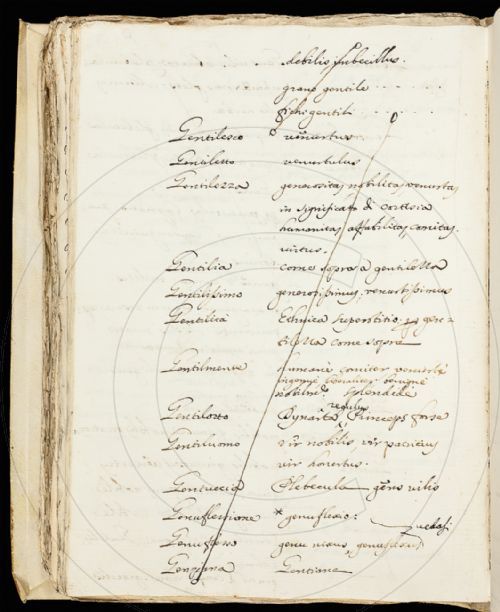 debilis, imbecillus.
grano gentile
fichi gentili
Gentilesco venustus.
Gentiletto venustulus
Gentilezza generositas, nobilitas, venustas,
in significato di cortesia
humanitas, affabilitas, comitas.
virtus.
Gentilia come sopra a gentilezza
Gentilissimo generosissimus, venustissimus
Gentilità Ethnica superstitio, gen=
tilezza come sopra
Gentilmente humanè comiter venustè
ingenuè benignè
splendidè
regulus
Gentilotto Dynasta, Princeps
Gentiluomo vir nobilis, vir patritius
vir honestus.
Gentuccia Plebecula, gens vilis
Genuflessione * genuflexio:
Genuflesso genu nixus, genuflexus,
Genziana Gentiane